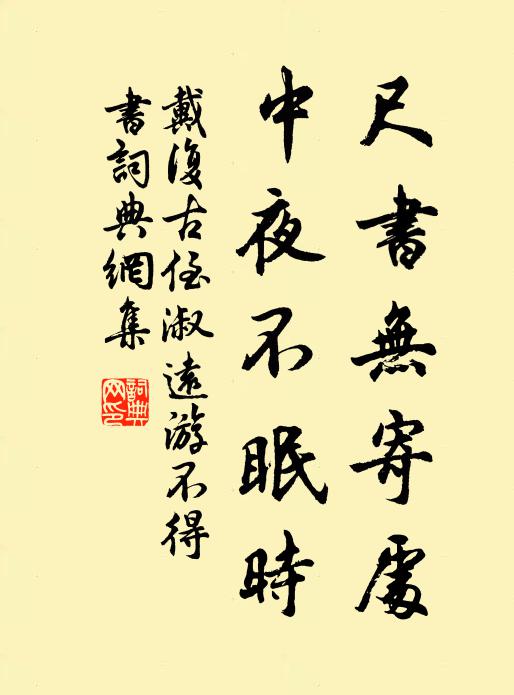 尺書無寄處
中夜不眠時
戴復古侄淑遠游不得
書詞典網集
詞典
网印